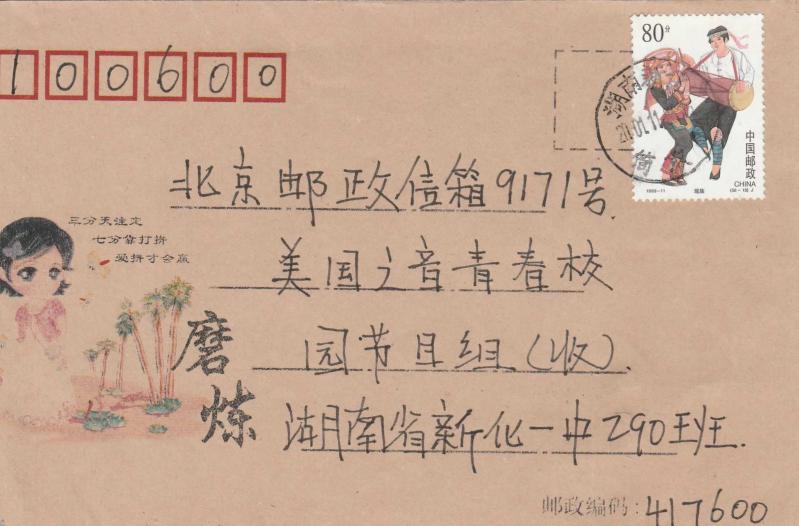 100600
80分
中国邮政
CHINA
1999-11
瑶族
湖南
北京邮政信箱9171号
三分天注定
七分靠打拼
爱拼才会赢
美国之音青春校
园节目组(收)
磨炼
湖南省新化一中290班
邮政编码:417600